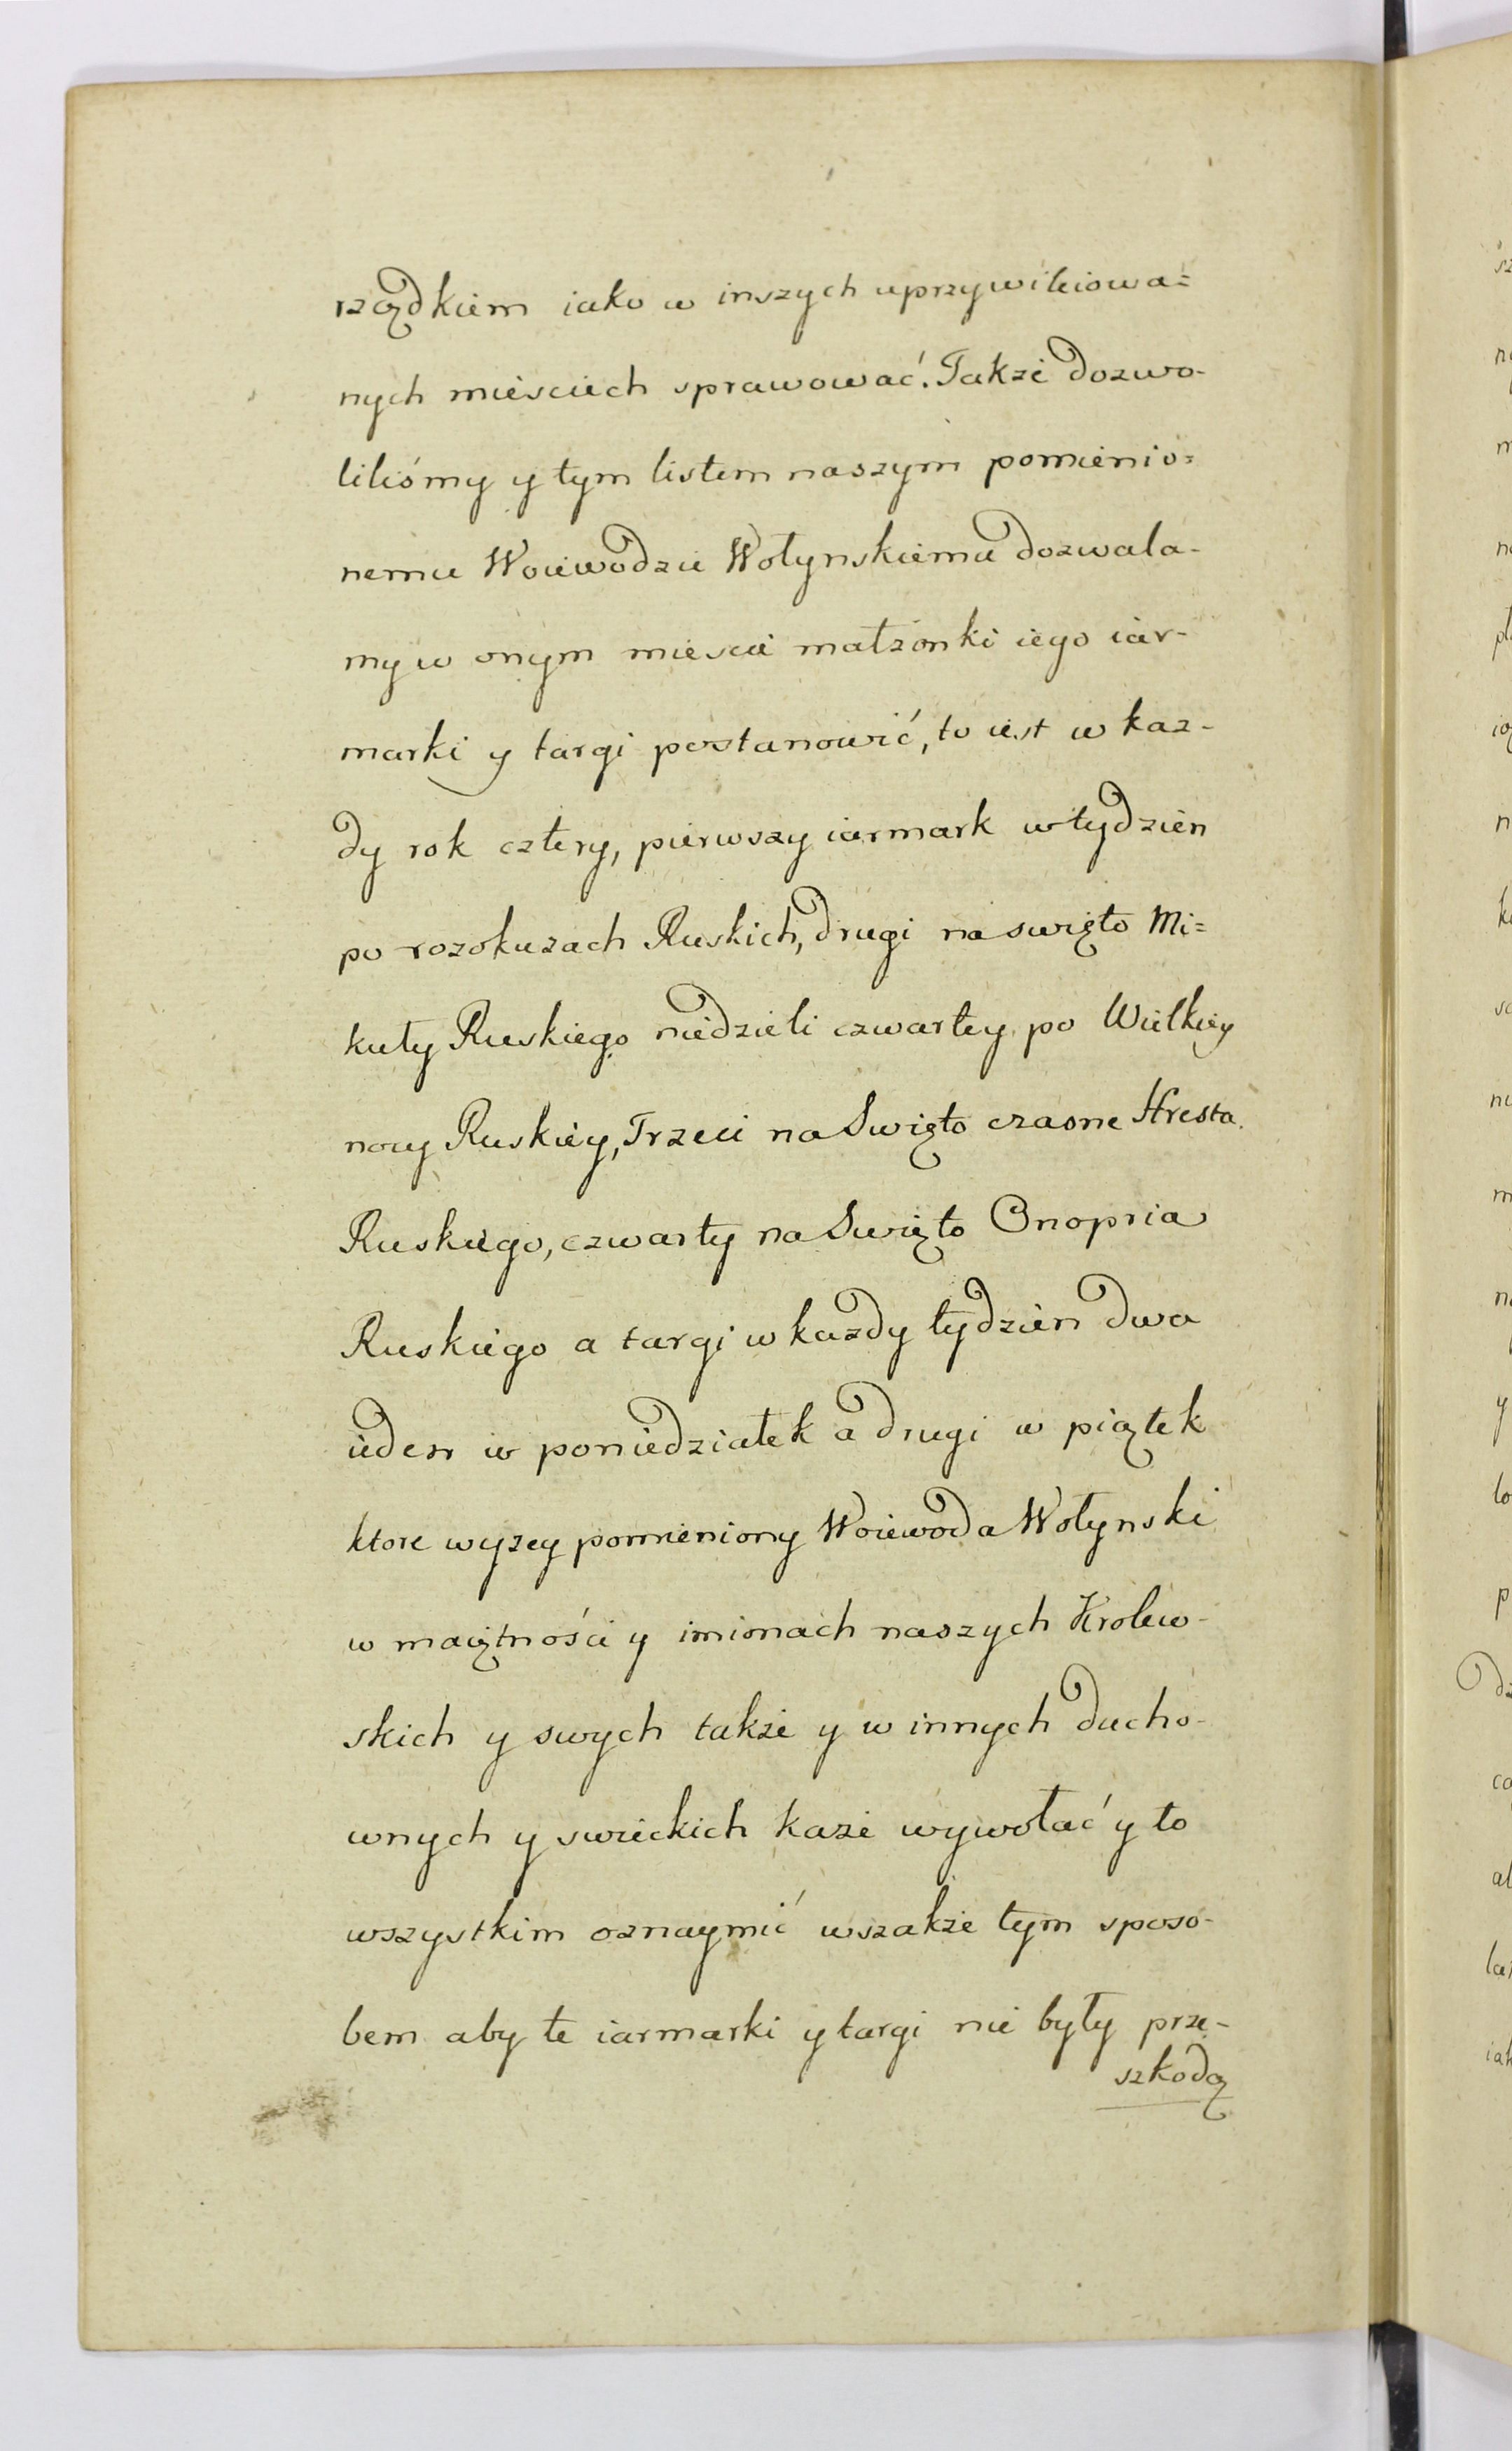 rządkiem iako w inszych uprzywileiowa=
nych miesciech sprawować. Także dozwo-
liliśmy y tym listem naszym pomienio=
nemu Woiewodzie Wołynskiemu dozwala-
my w onym miescie małżonki iego iar-
marki y targi postanowić, to iest w kaz-
dy rok cztery, pierwszy iarmark w tydzien
po rozokuzach Ruskich, drugi na swięto Mi=
kuły Ruskiego niedzieli czwartey po Wielkiey
nocy Ruskiey, Trzeci na Swięto czasne Hresta
Ruskiego, czwarty na Swięto Onopria
Ruskiego a targi w kazdy tydzien dwa
ieden w poniedziałek a drugi w piątek
ktore wyzey pomieniony Woiewoda Wołynski
w maiętności y imionach naszych Krolew-
skich y swych także y w innych ducho-
wnych y swieckich każe wywołać y to
wszystkim oznaymić wszakże tym sposo-
bem aby te iarmarki y targi nie były prze-
szkodą